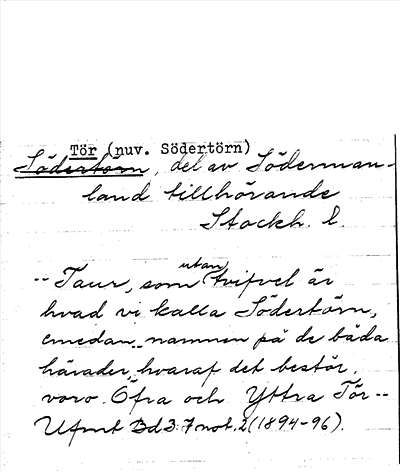 Tör (nuv. Södertörn)
Södertörn, del av Söderman-
land tillhörande
Stockh. l.
-- Taur, som utan tvifvel är
hvad vi kalla Södertörn,
emedan namnen på de båda
härader, hvaraf det består,
voro Öfra och Yttra Tör --
Ufmt Bd 3: 7 not. 2 (1894-96).